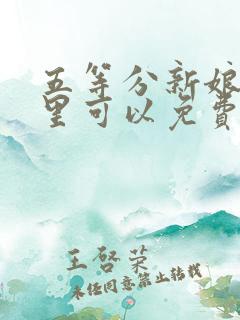 五等分新娘
里可以免費
王啓荣
未经同意禁止转载